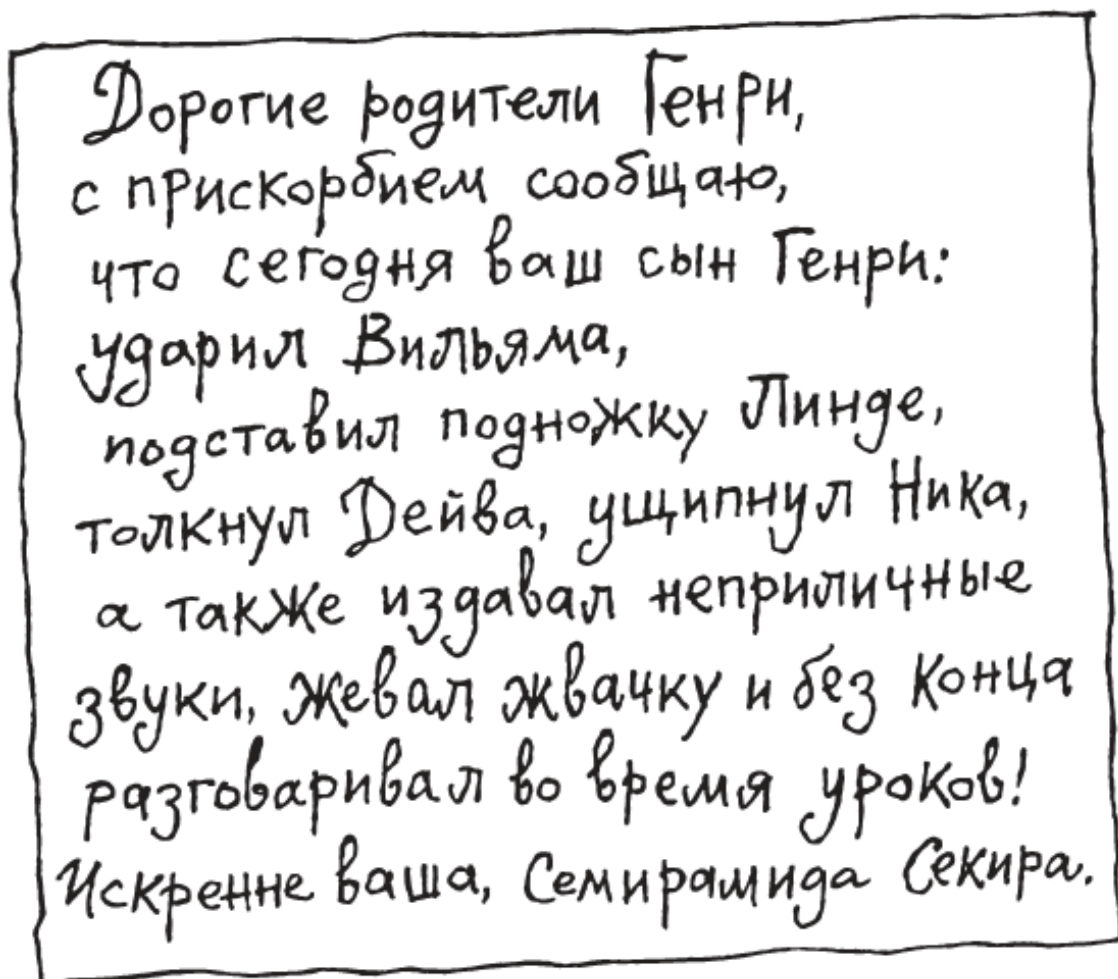 Дорогие родители Генри,
с прискорбием сообщаю,
что сегодня ваш сын Генри:
ударил Вильяма,
подставил подножку Линде,
толкнул Дейва, ущипнул Ника,
а также издавал неприличные
звуки, жевал жвачку и без конца
разговаривал во время уроков!
Искренне ваша, Семирамида Секира.